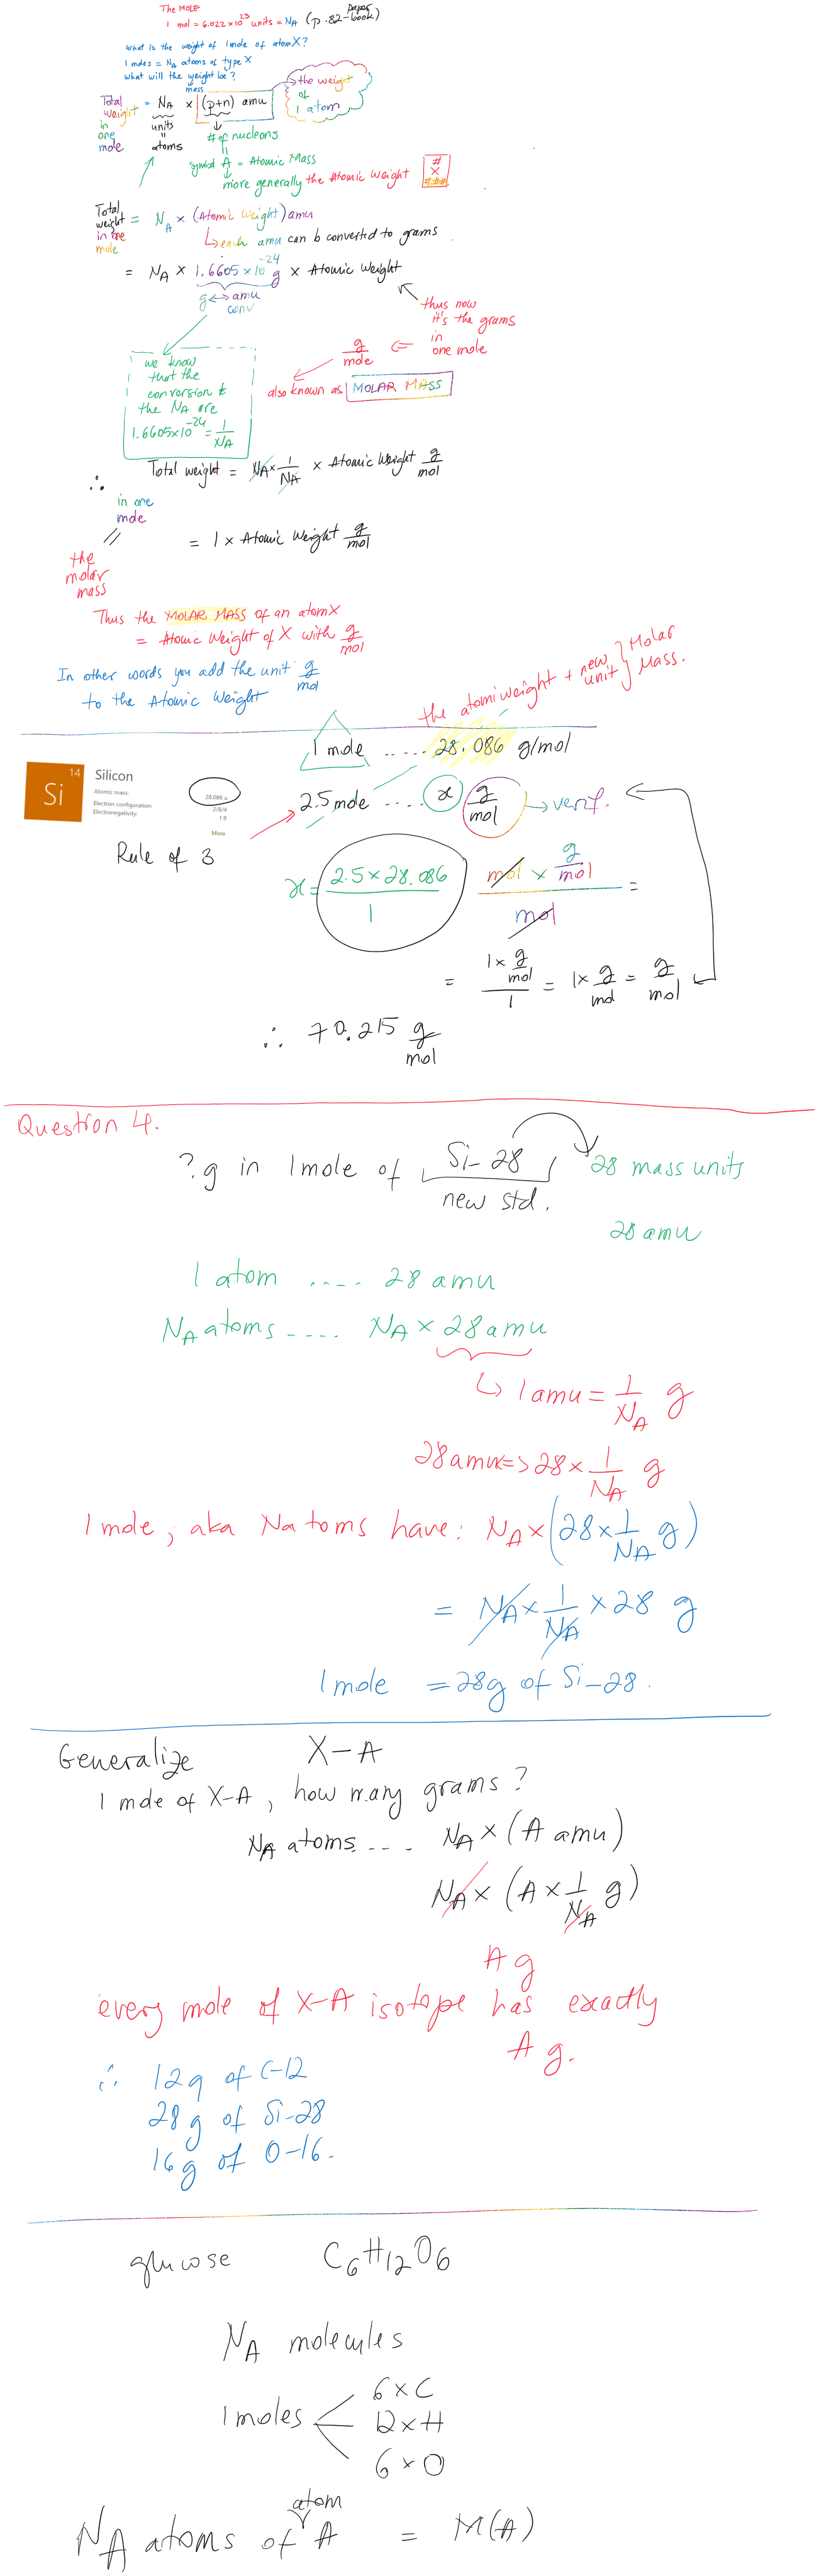 The MOLE
1 mol = 6.022 × 10^23 units = NA (p. 82 - paper book)
what is the weight of 1 mole of atom X?
1 moles = NA atoms of type X
what will the weight be?
mass
Total weight in one mole = NA × (p+n) amu
the weight of 1 atom
units = atoms
# of nucleons
symbol A = Atomic Mass
more generally the Atomic Weight
# X #.##
Total weight in one mole = NA × (Atomic Weight) amu
each amu can b converted to grams
= NA × 1.6605 × 10^-24 g × Atomic Weight
g ↔ amu
conv
thus now it's the grams in one mole
g/mole ⇐
also known as MOLAR MASS
we know
that the
conversion &
the NA are
1.6605×10^-24 = 1/NA
∴ Total weight = NA × 1/NA × Atomic Weight g/mol
in one mole
= 1 × Atomic Weight g/mol
//
the
molar
mass
Thus the MOLAR MASS of an atom X
= Atomic Weight of X with g/mol
In other words you add the unit g/mol
to the Atomic Weight
the atomi weight + new unit } Molar Mass.
1 mole .... 28.086 g/mol
14
Si
Silicon
Atomic mass: 28.086 u
Electron configuration: 2/8/4
Electronegativity: 1.9
More
2.5 mole .... x g/mol → verif.
Rule of 3
x = 2.5 × 28.086 / 1
mol × g/mol / mol =
= 1 × g/mol / 1 = 1 × g/mol = g/mol
∴ 70.215 g/mol
Question 4.
? g in 1 mole of Si-28
new std.
28 mass units
28 amu
1 atom .... 28 amu
NA atoms .... NA × 28 amu
↳ 1 amu = 1/NA g
28 amu => 28 × 1/NA g
1 mole, aka Na toms have: NA × (28 × 1/NA g)
= NA × 1/NA × 28 g
1 mole = 28g of Si-28.
Generalize X-A
1 mole of X-A, how many grams?
NA atoms .... NA × (A amu)
NA × (A × 1/NA g)
A g
every mole of X-A isotope has exactly
A g.
∴ 12g of C-12
28g of Si-28
16g of O-16.
glucose C6H12O6
NA molecules
1 moles
6 × C
12 × H
6 × O
atom
NA atoms of A = M(A)